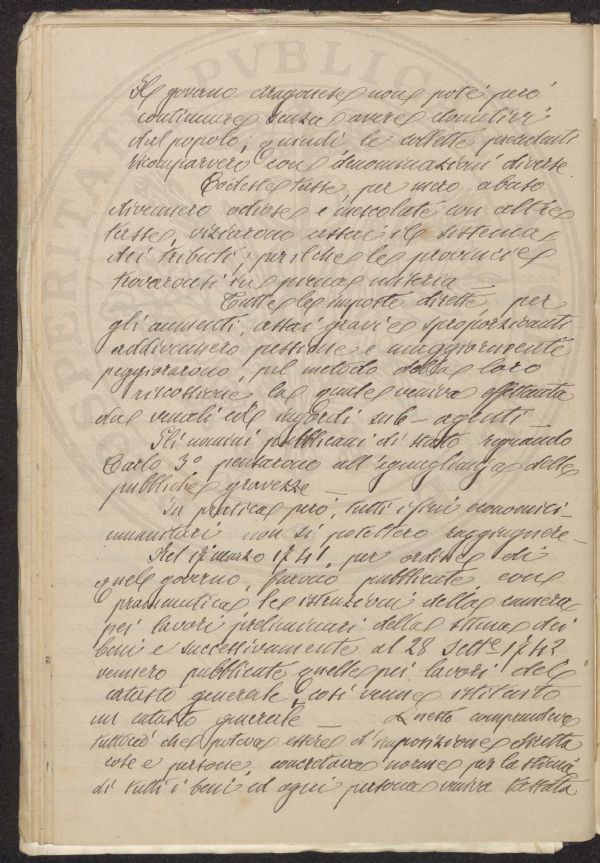 Il governo aragonese non potè però
continuare senza avere donativi
dal popolo; quindi le collette precedenti
ricomparvero con denominazioni diverse.
Codeste tasse, per mero abuso
divennero odiose e mescolate con altre
tasse, viziarono assai il sistema
dei tributi; perilche le provincie
trovaronsi in piena miseria
Tutte le imposte dirette per
gli aumenti, assai gravi e sproporzionati
addivennero pessime e maggiormente
peggiorarono, pel metodo della loro
riscossione, la quale veniva affittata
da venali ed ingordi sub-agenti
Gli uomini pubblicani di stato regnando
Carlo 3º pensarono all'eguaglianza delle
pubbliche gravezze —
In pratica però, tutti i fini economici
umanitari non si potettero raggiungere —
Nel 17 marzo 1741, per ordine di
quel governo, furono pubblicate con
prammatica le istruzioni della camera
pei lavori preliminari della stima dei
beni e successivamente al 28 Sett.e 1742
vennero pubblicate quelle pei lavori del
catasto generale, così venne istituito
un catasto generale — Questo comprendeva
tuttociò che poteva essere d'imposizione diretta
cose e persone, concretava norme per la stima
di tutti i beni, ed ogni persona veniva tassata
PVBLIC